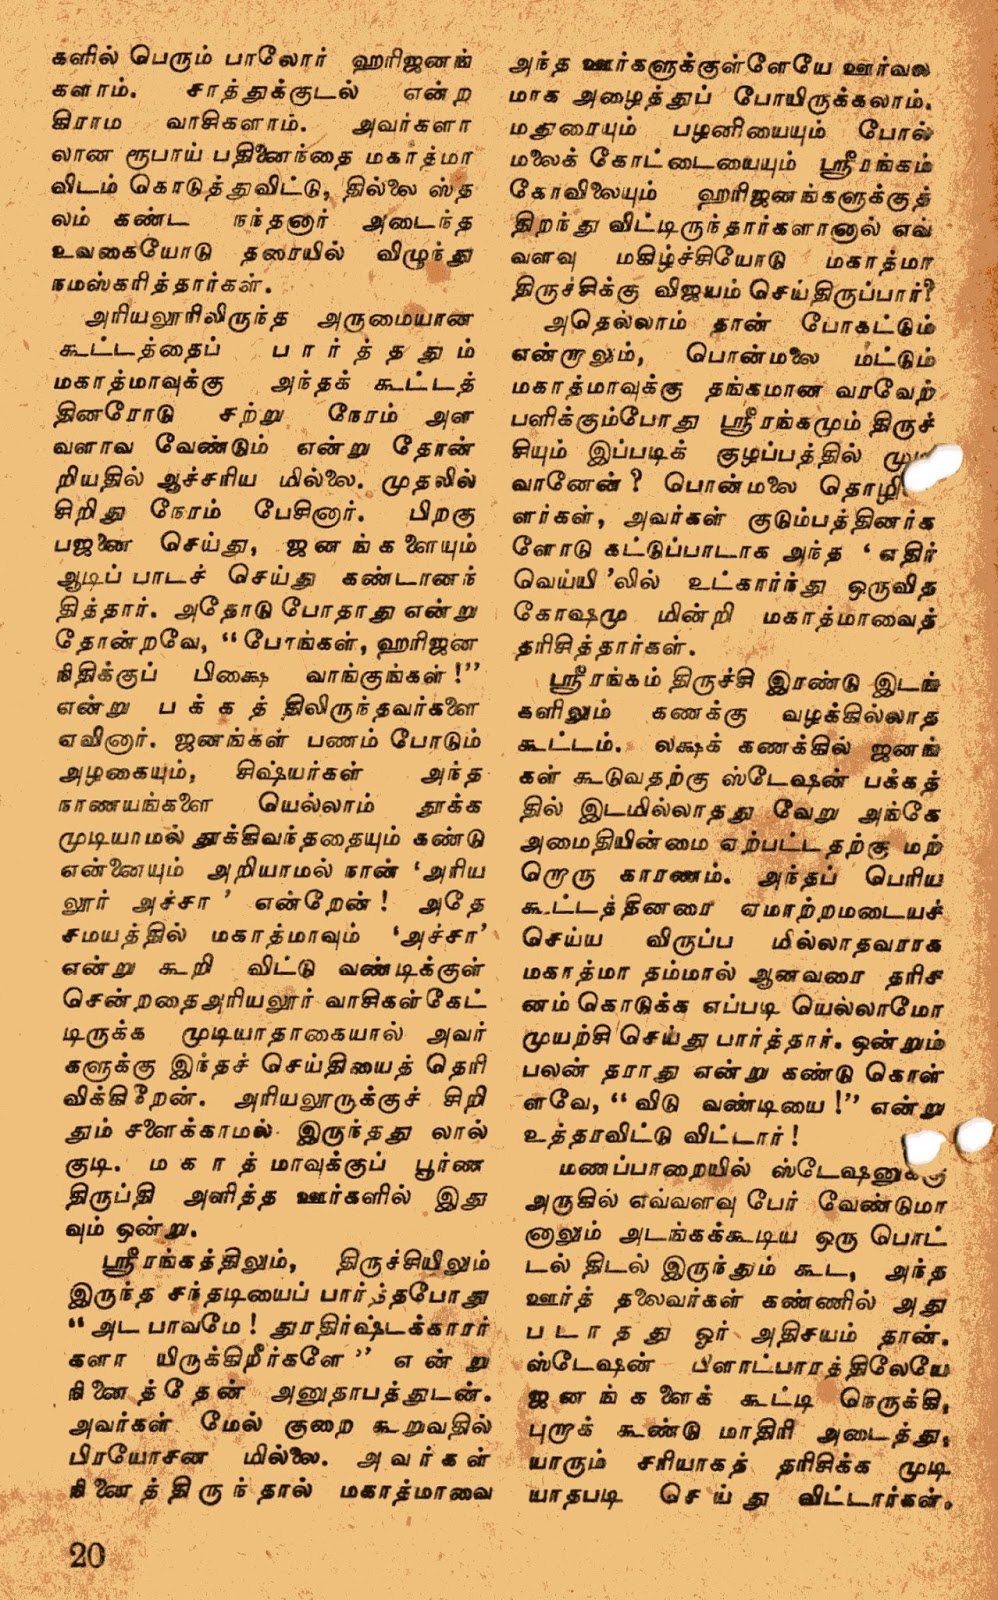 களில் பெரும் பாலோர் ஹரிஜனங்
களாம். சாத்துக்குடல் என்ற
கிராம வாசிகளாம். அவர்களா
லான ரூபாய் பதினைந்தை மகாத்மா
விடம் கொடுத்துவிட்டு, தில்லை ஸ்த
லம் கண்ட நந்தனார் அடைந்த
உவகையோடு தரையில் விழுந்து
நமஸ்கரித்தார்கள்.
அரியலூரிலிருந்த அருமையான
கூட்டத்தைப் பார்த்ததும்
மகாத்மாவுக்கு அந்தக் கூட்டத்
தினரோடு சற்று நேரம் அள
வளாவ வேண்டும் என்று தோன்
றியதில் ஆச்சரிய மில்லை. முதலில்
சிறிது நேரம் பேசினார். பிறகு
பஜனை செய்து, ஜனங்களையும்
ஆடிப் பாடச் செய்து கண்டானந்
தித்தார். அதோடு போதாது என்று
தோன்றவே, “போங்கள், ஹரிஜன
நிதிக்குப் பிக்ஷை வாங்குங்கள்!”
என்று பக்கத்திலிருந்தவர்களை
ஏவினார். ஜனங்கள் பணம் போடும்
அழகையும், சிஷ்யர்கள் அந்த
நாணயங்களை யெல்லாம் தூக்க
முடியாமல் தூக்கிவந்ததையும் கண்டு
என்னையும் அறியாமல் நான் ‘அரிய
லூர் அச்சா’ என்றேன்! அதே
சமயத்தில் மகாத்மாவும் ‘அச்சா’
என்று கூறி விட்டு வண்டிக்குள்
சென்றதைஅரியலூர் வாசிகள்கேட்
டிருக்க முடியாதாகையால் அவர்
களுக்கு இந்தச் செய்தியைத் தெரி
விக்கிறேன். அரியலூருக்குச் சிறி
தும் சளைக்காமல் இருந்தது லால்
குடி. மகாத்மாவுக்குப் பூர்ண
திருப்தி அளித்த ஊர்களில் இது
வும் ஒன்று.
ஸ்ரீரங்கத்திலும், திருச்சியிலும்
இருந்த சந்தடியைப் பார்த்தபோது
“அட பாவமே! துரதிர்ஷ்டக்காரர்
களா யிருக்கிறீர்களே” என்று
நினைத்தேன் அனுதாபத்துடன்.
அவர்கள் மேல் குறை கூறுவதில்
பிரயோசன மில்லை. அவர்கள்
நினைத்திருந்தால் மகாத்மாவை
20
அந்த ஊர்களுக்குள்ளேயே ஊர்வல
மாக அழைத்துப் போயிருக்கலாம்.
மதுரையும் பழனியையும் போல்
மலைக் கோட்டையையும் ஸ்ரீரங்கம்
கோவிலையும் ஹரிஜனங்களுக்குத்
திறந்து விட்டிருந்தார்களானால் எவ்
வளவு மகிழ்ச்சியோடு மகாத்மா
திருச்சிக்கு விஜயம் செய்திருப்பார்?
அதெல்லாம் தான் போகட்டும்
என்றாலும், பொன்மலை மட்டும்
மகாத்மாவுக்கு தங்கமான வரவேற்
பளிக்கும்போது ஸ்ரீரங்கமும் திருச்
சியும் இப்படிக் குழப்பத்தில்
வானேன்? பொன்மலை
ளர்கள், அவர்கள் குடும்பத்தினர்க
ளோடு கட்டுப்பாடாக அந்த ‘எதிர்
வெய்யி’லில் உட்கார்ந்து ஒருவித
கோஷமு மின்றி மகாத்மாவைத்
தரிசித்தார்கள்.
ஸ்ரீரங்கம் திருச்சி இரண்டு இடங்
களிலும் கணக்கு வழக்கில்லாத
கூட்டம். லக்ஷக் கணக்கில் ஜனங்
கள் கூடுவதற்கு ஸ்டேஷன் பக்கத்
தில் இடமில்லாதது வேறு அங்கே
அமைதியின்மை ஏற்பட்டதற்கு மற்
றொரு காரணம். அந்தப் பெரிய
கூட்டத்தினரை ஏமாற்றமடையச்
செய்ய விருப்ப மில்லாதவராக
மகாத்மா தம்மால் ஆனவரை தரிச
னம் கொடுக்க எப்படி யெல்லாமோ
முயற்சி செய்து பார்த்தார். ஒன்றும்
பலன் தராது என்று கண்டு கொள்
ளவே, “விடு வண்டியை!” என்று
உத்தரவிட்டு விட்டார்!
மணப்பாறையில் ஸ்டேஷனுக்கு
அருகில் எவ்வளவு பேர் வேண்டுமா
னாலும் அடங்கக்கூடிய ஒரு பொட்
டல் திடல் இருந்தும் கூட, அந்த
ஊர்த் தலைவர்கள் கண்ணில் அது
படாதது ஓர் அதிசயம் தான்.
ஸ்டேஷன் பிளாட்பாரத்திலேயே
ஜனங்களைக் கூட்டி நெருக்கி,
புறாக் கூண்டு மாதிரி அடைத்து,
யாரும் சரியாகத் தரிசிக்க முடி
யாதபடி செய்து விட்டார்கள்.